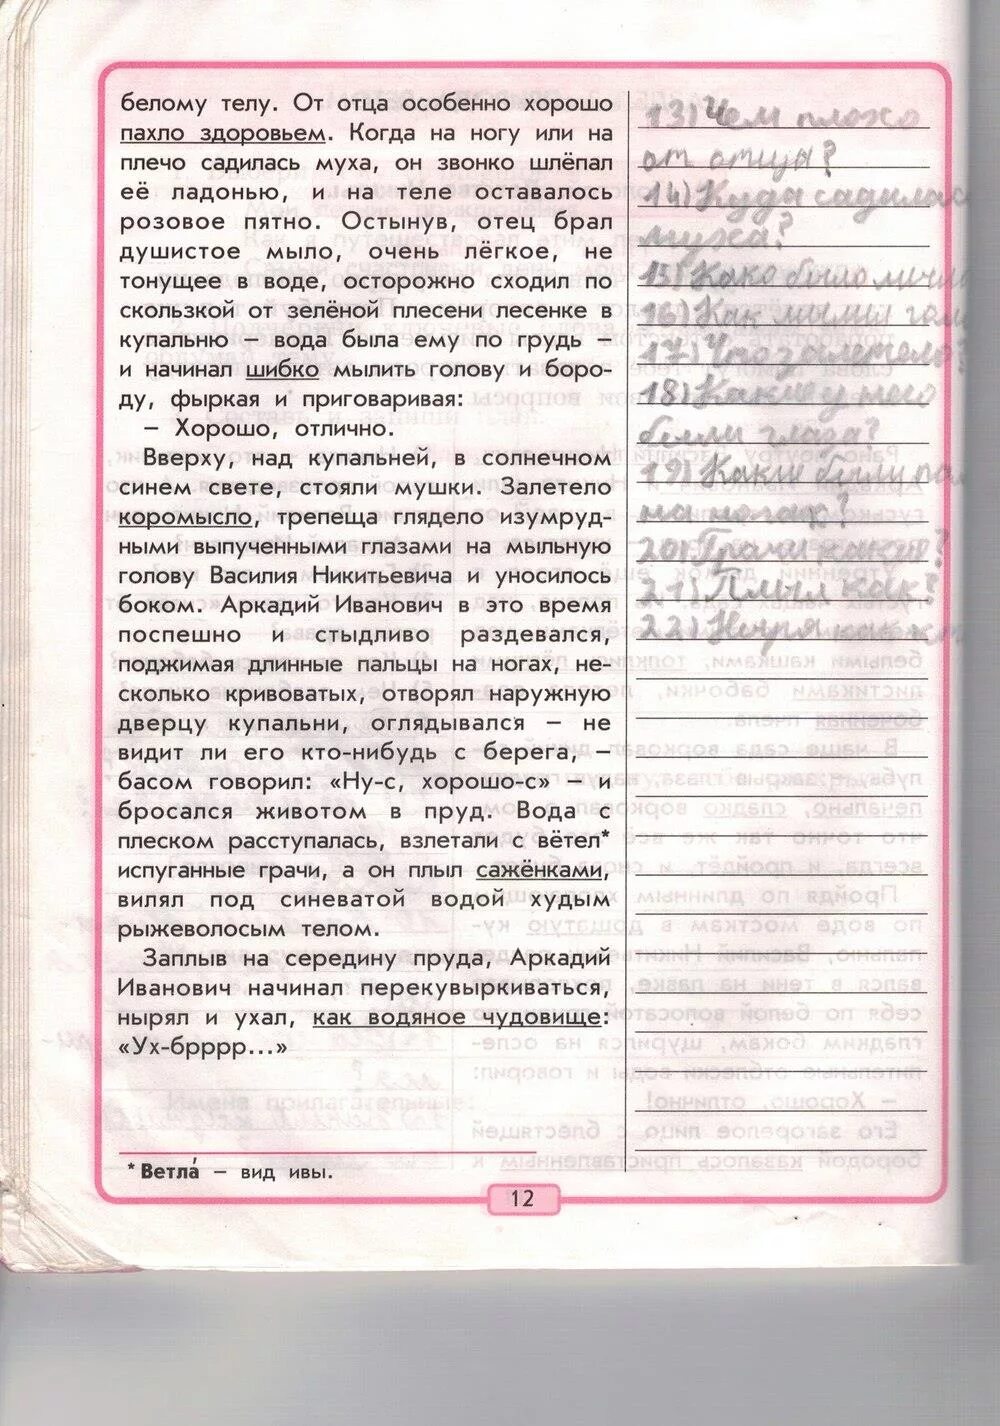 белому телу. От отца особенно хорошо
пахло здоровьем. Когда на ногу или на
плечо садилась муха, он звонко шлёпал
её ладонью, и на теле оставалось
розовое пятно. Остынув, отец брал
душистое мыло, очень лёгкое, не
тонущее в воде, осторожно сходил по
скользкой от зелёной плесени лесенке в
купальню – вода была ему по грудь –
и начинал шибко мылить голову и боро-
ду, фыркая и приговаривая:
– Хорошо, отлично.
Вверху, над купальней, в солнечном
синем свете, стояли мушки. Залетело
коромысло, трепеща глядело изумруд-
ными выпученными глазами на мыльную
голову Василия Никитьевича и уносилось
боком. Аркадий Иванович в это время
поспешно и стыдливо раздевался,
поджимая длинные пальцы на ногах, не-
сколько кривоватых, отворял наружную
дверцу купальни, оглядывался – не
видит ли его кто-нибудь с берега, –
басом говорил: «Ну-с, хорошо-с» – и
бросался животом в пруд. Вода с
плеском расступалась, взлетали с вётел*
испуганные грачи, а он плыл сажёнками,
вилял под синеватой водой худым
рыжеволосым телом.
Заплыв на середину пруда, Аркадий
Иванович начинал перекувыркиваться,
нырял и ухал, как водяное чудовище:
«Ух-брррр...»
* Ветла́ – вид ивы.
12
13) Чем
от отца?
14) Куда садилас
муха?
15) было
16) Как
17) Что залетело?
18) Какие у него
были глаза?
19) Какие были
на ногах?
20) Грачи
21) Плыл как?
22)